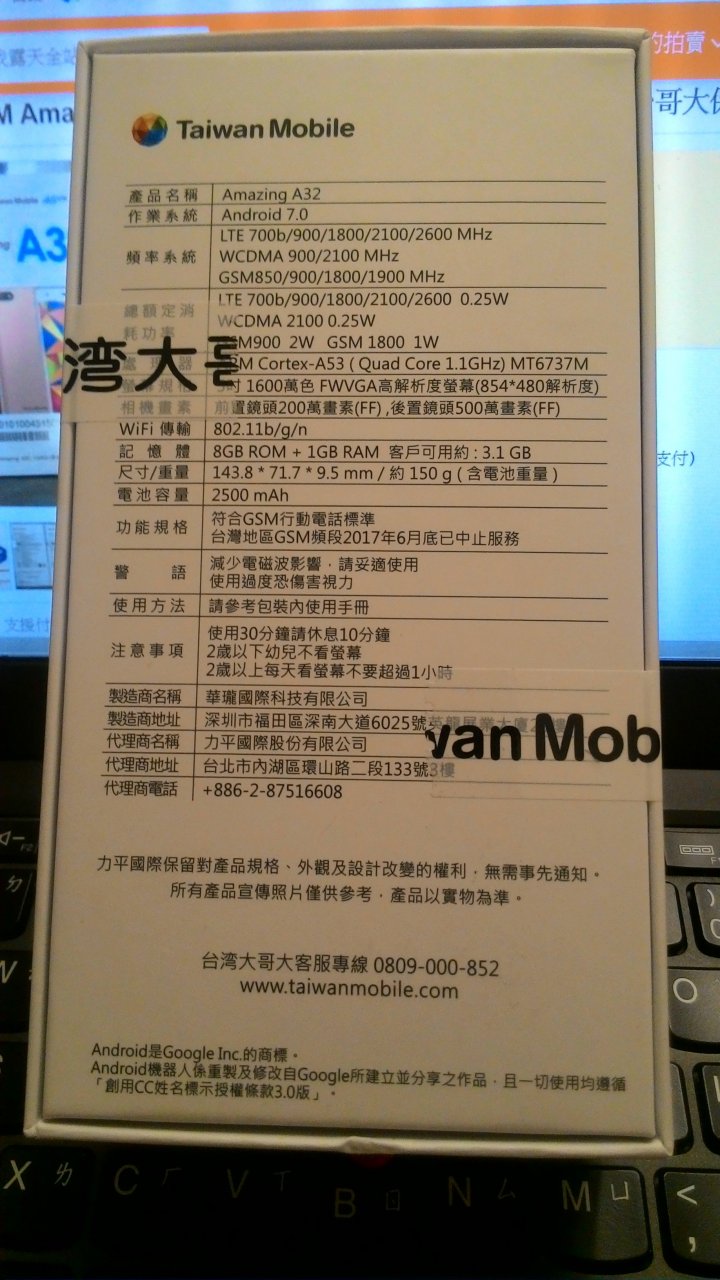 的拍賣
露天全站
M Ama
哥大
A3
支付)
支援付
Taiwan Mobile
產品名稱 Amazing A32
作業系統 Android 7.0
頻率系統 LTE 700b/900/1800/2100/2600 MHz
WCDMA 900/2100 MHz
GSM850/900/1800/1900 MHz
總額定消耗功率 LTE 700b/900/1800/2100/2600 0.25W
WCDMA 2100 0.25W
GSM900 2W GSM 1800 1W
湾大哥
處理器 ARM Cortex-A53 ( Quad Core 1.1GHz) MT6737M
螢幕規格 5吋 1600萬色 FWVGA高解析度螢幕(854*480解析度)
相機畫素 前置鏡頭200萬畫素(FF) ,後置鏡頭500萬畫素(FF)
WiFi 傳輸 802.11b/g/n
記憶體 8GB ROM + 1GB RAM 客戶可用約 : 3.1 GB
尺寸/重量 143.8 * 71.7 * 9.5 mm / 約 150 g ( 含電池重量 )
電池容量 2500 mAh
功能規格 符合GSM行動電話標準
台灣地區GSM頻段2017年6月底已中止服務
警語 減少電磁波影響，請妥適使用
使用過度恐傷害視力
使用方法 請參考包裝內使用手冊
注意事項 使用30分鐘請休息10分鐘
2歲以下幼兒不看螢幕
2歲以上每天看螢幕不要超過1小時
製造商名稱 華瓏國際科技有限公司
製造商地址 深圳市福田區深南大道6025號英龍展業大廈2
代理商名稱 力平國際股份有限公司
wan Mob
代理商地址 台北市內湖區環山路二段133號3樓
代理商電話 +886-2-87516608
力平國際保留對產品規格、外觀及設計改變的權利，無需事先通知。
所有產品宣傳照片僅供參考，產品以實物為準。
台湾大哥大客服專線 0809-000-852
www.taiwanmobile.com
Android是Google Inc.的商標。
Android機器人係重製及修改自Google所建立並分享之作品，且一切使用均遵循
「創用CC姓名標示授權條款3.0版」。
O
X ㄌ C ㄏ V ㄒ B ㄖ N ㄙ M ㄩ < ,